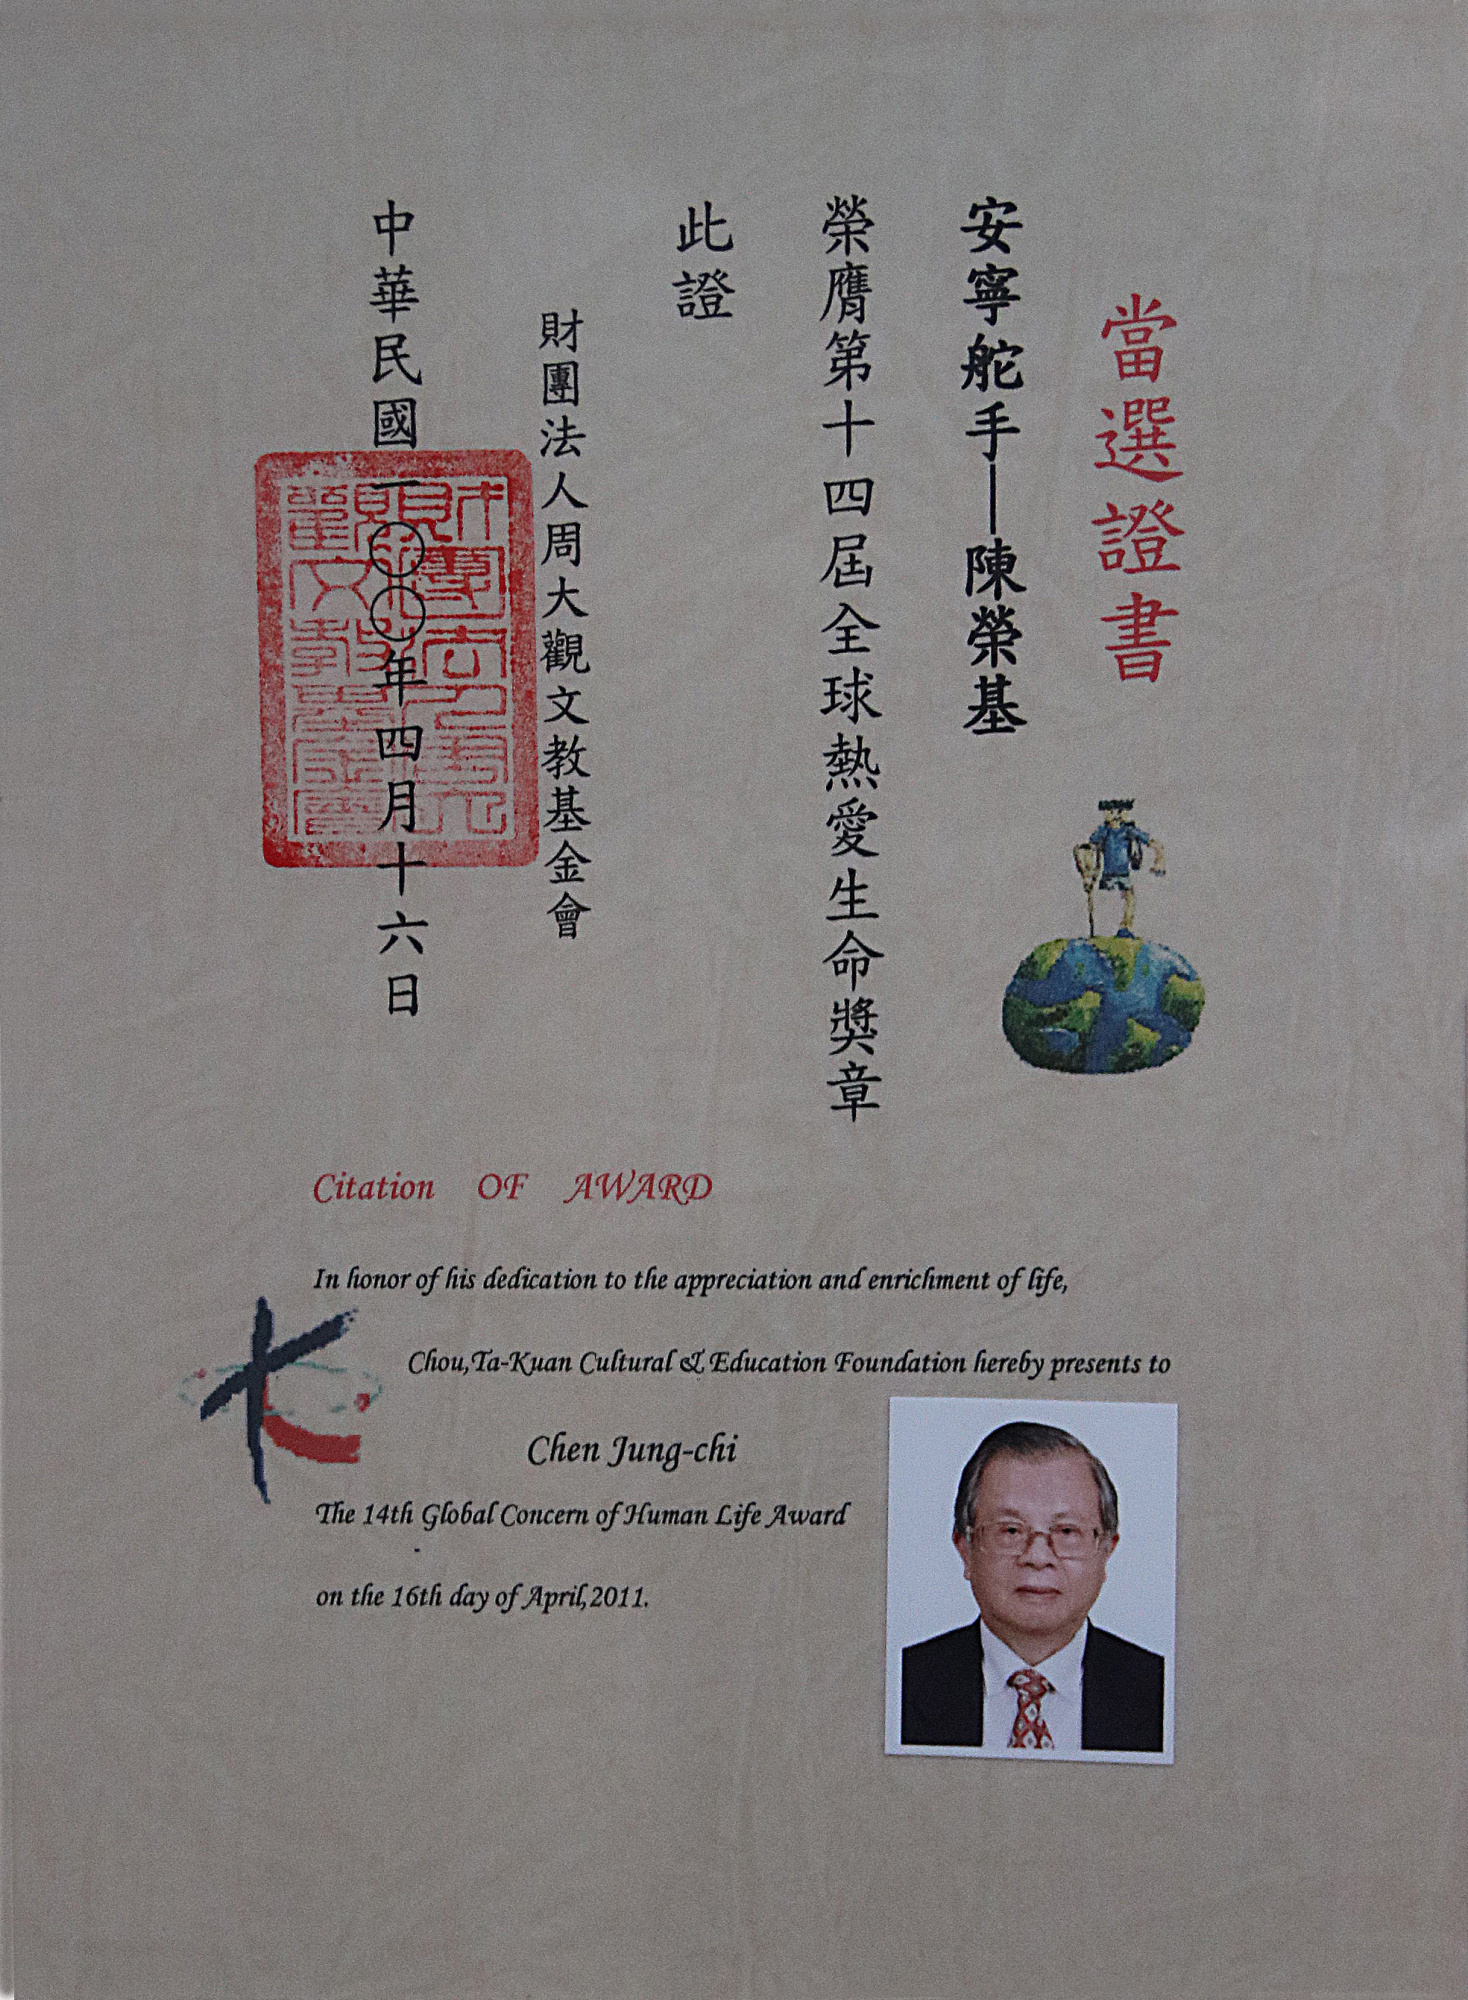 當選證書
安寧舵手—陳榮基
榮膺第十四屆全球熱愛生命獎章
此證
財團法人周大觀文教基金會
中華民國一〇〇年四月十六日
Citation OF AWARD
In honor of his dedication to the appreciation and enrichment of life,
Chou,Ta-Kuan Cultural & Education Foundation hereby presents to
Chen Jung-chi
The 14th Global Concern of Human Life Award
on the 16th day of April,2011.